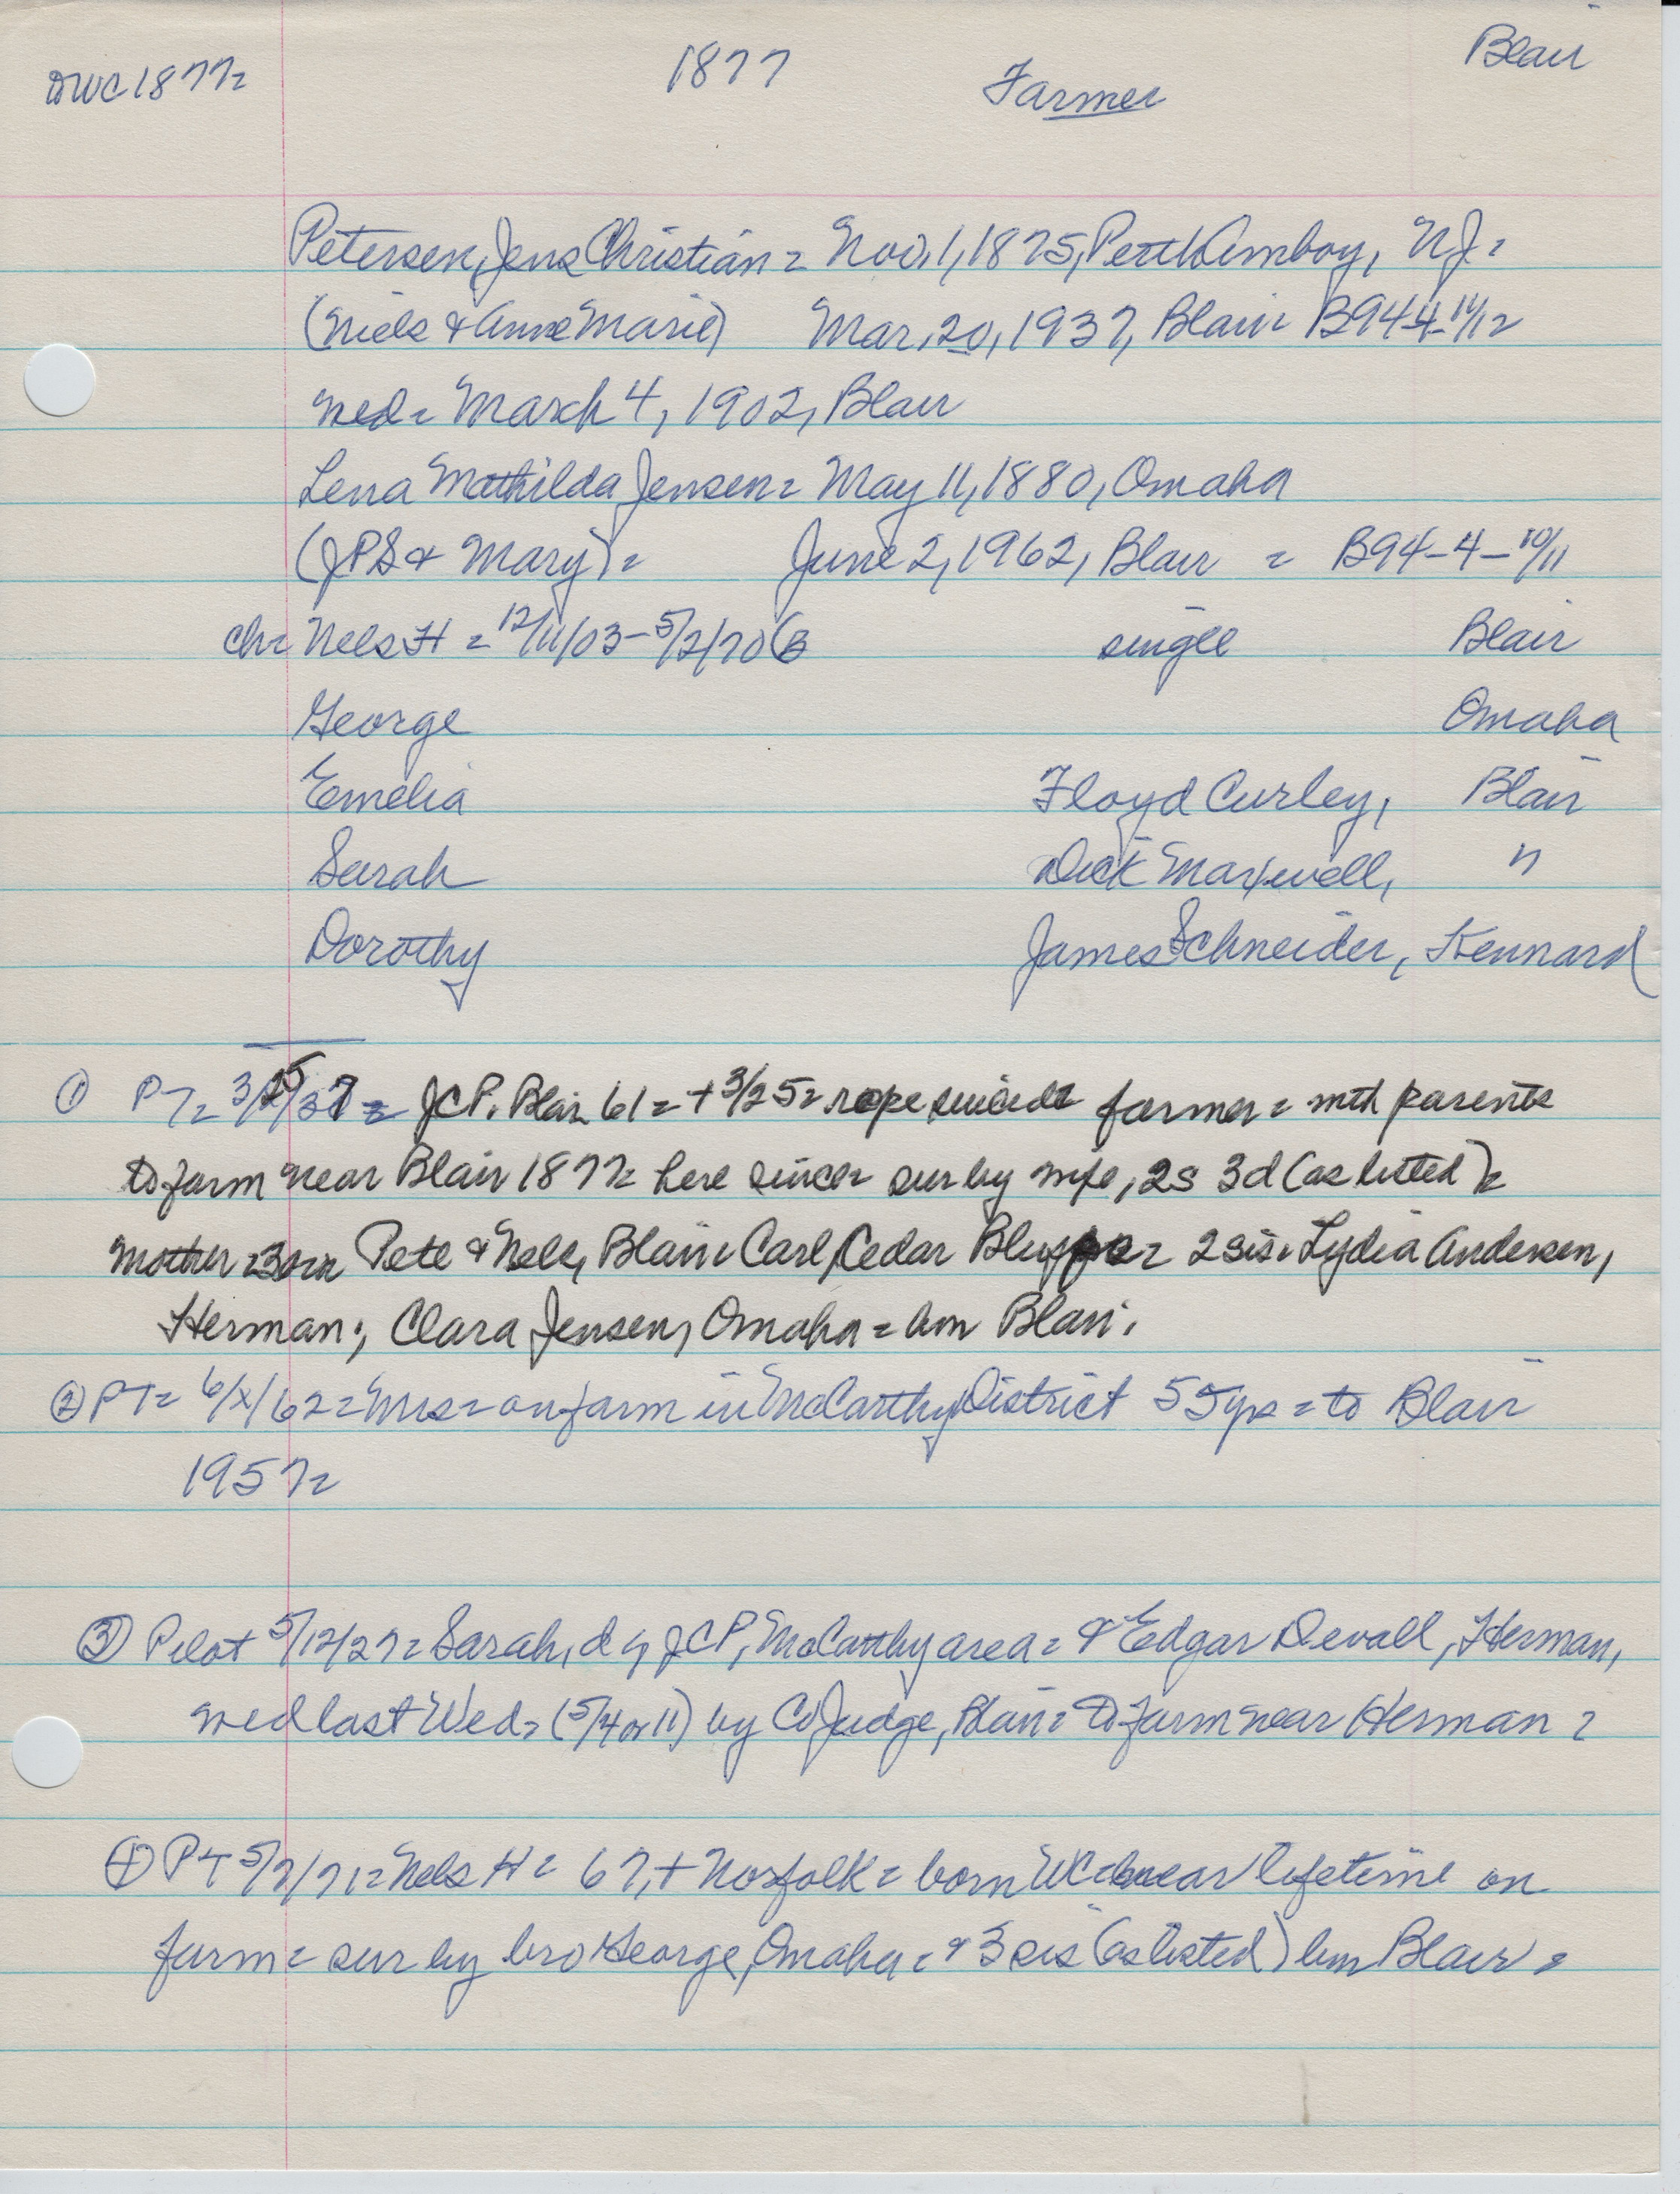 DWC 1877= 1877 Farmer Blair
Petersen, Jens Christian = Nov. 1, 1875, Perth Amboy, NJ =
(Niels & Anne Marie) Mar. 20, 1937, Blair = B94-4-11/12
med = March 4, 1902, Blair
Lena Mathilda Jensen = May 11, 1880, Omaha
(JPS & Mary) = June 2, 1962, Blair = B94-4-10/11
ch = Nels H = 12/11/03-5/2/70 (B single Blair
George Omaha
Emelia Floyd Curley, Blair
Sarah Dick Maxwell, "
Dorothy James Schneider, Kennard
① PT = 3/25/37 = JCP, Blair 61 = + 3/25 = rope suicide farmer = with parents
to farm near Blair 1877 = here since = sur by wife, 2s 3d (as listed) =
mother = 3 Pete & Nels, Blair = Carl, Cedar Bluffs = 2 sis = Lydia Andersen,
Herman; Clara Jensen, Omaha = bm Blair.
② PT = 6/x/62 = Mrs = on farm in McCarthy District 55 yrs = to Blair
1957 =
③ Pilot 5/12/27 = Sarah, d of JCP, McCarthy area = & Edgar Devall, Herman,
med last Wed = (5/4 or 11) by Co Judge, Blair = to farm near Herman =
④ PT 5/7/71 = Nels H = 67, + Norfolk = born WC = near lifetime on
farm = sur by bro George, Omaha = & 3 sis (as listed) bm Blair =